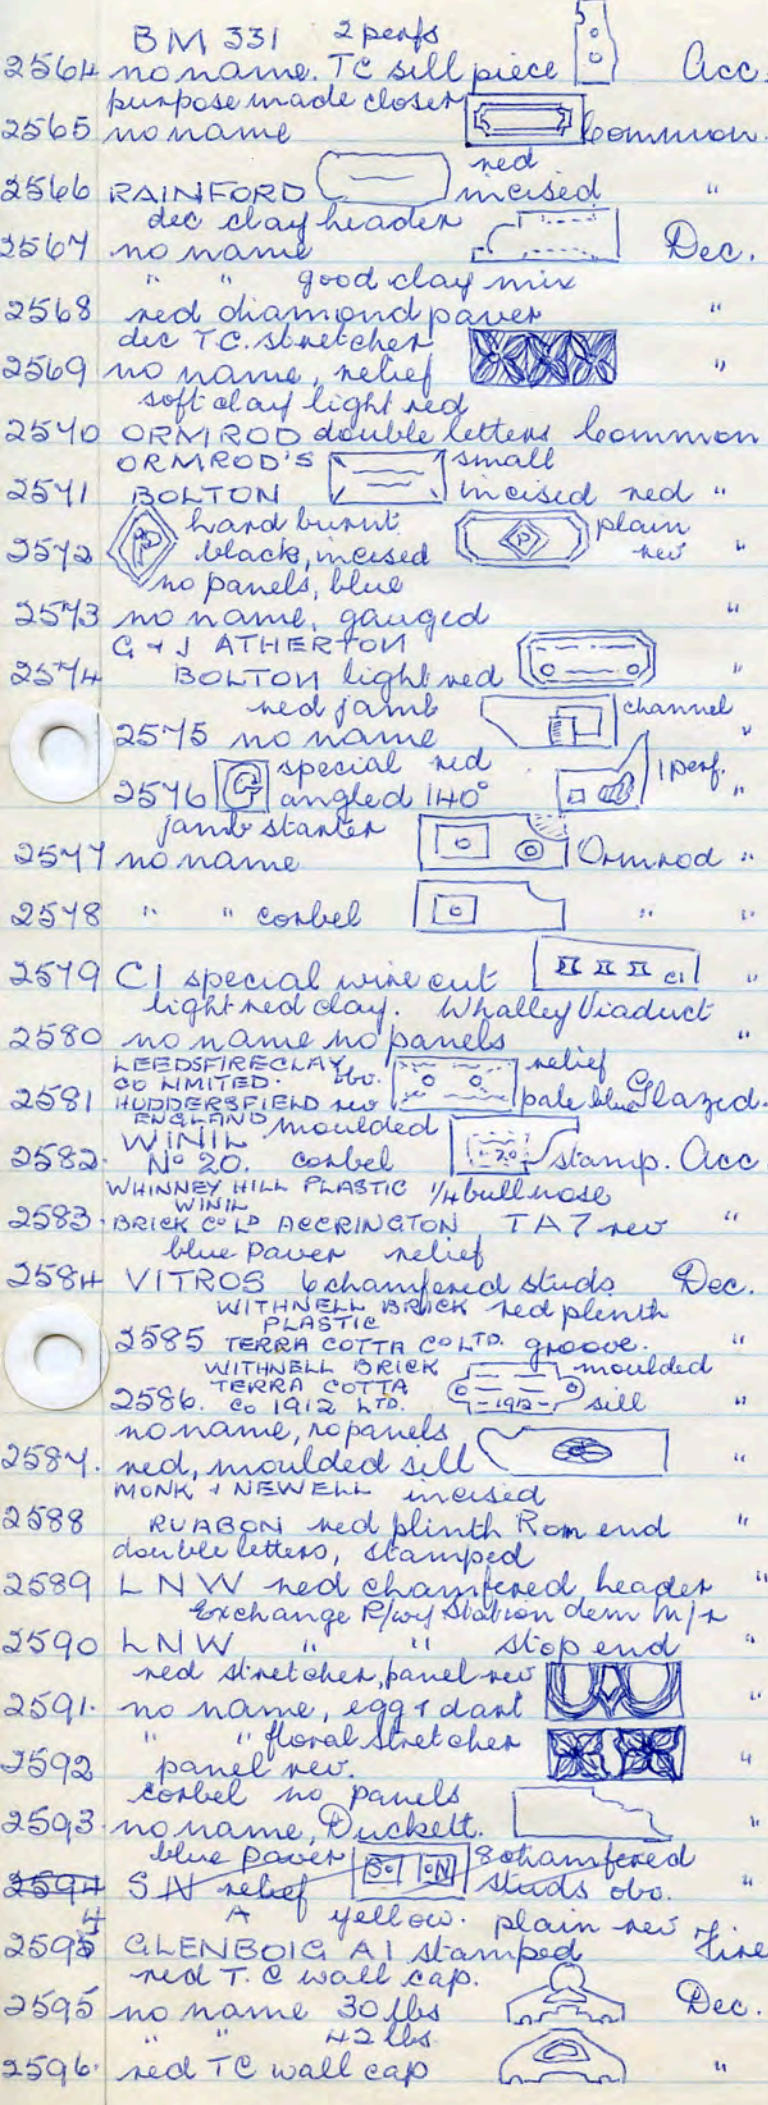 BM 331 2 perfs 5
2564 no name. TC sill piece Acc.
purpose made closer
2565 no name Common.
red
2566 RAINFORD incised "
dec clay header
2567 no name Dec.
" " good clay mix
2568 red diamond paver "
dec TC. stretcher
2569 no name, relief "
soft clay light red
2570 ORMROD double letters Common
ORMROD'S small
2571 BOLTON incised red "
P hard burnt P plain
2572 black, incised rev "
no panels, blue
2573 no name, gauged "
G & J ATHERTON
2574 BOLTON light red "
red jamb channel
2575 no name "
special red 1 perf.
2576 G angled 140° "
jamb starter
2577 no name Ormrod "
2578 " " corbel " "
2579 C1 special wire cut C1 "
light red clay. Whalley Viaduct
2580 no name no panels "
LEEDSFIRECLAY relief
CO LIMITED. obv.
2581 HUDDERSFIELD rev pale blue Glazed.
ENGLAND moulded
WINIL
2582. No 20. corbel 20 stamp. Acc
WHINNEY HILL PLASTIC 1/4 bullnose
WINIL
2583. BRICK Co LD ACCRINGTON TA7 rev "
blue paver relief
2584 VITROS 6 chamfered studs Dec.
WITHNELL BRICK red plinth
PLASTIC
2585 TERRA COTTA CO LTD. groove. "
WITHNELL BRICK moulded
TERRA COTTA
2586. Co 1912 LTD. 1912 sill "
no name, no panels
2587. red, moulded sill "
MONK & NEWELL incised
2588 RUABON red plinth Rom end "
double letters, stamped
2589 LNW red chamfered header "
Exchange R/wy Station dem M/r
2590 LNW " " stop end "
red stretcher, panel rev
2591. no name, egg & dart "
" " floral stretcher
2592 panel rev. "
corbel no panels
2593. no name, Duckett. "
blue paver 8 chamfered
2594 SN relief S N studs obv. "
4 A yellow. plain rev
2595 GLENBOIG A1 stamped Fire
red T.C wall cap.
2595 no name 30 lbs Dec.
" " 42 lbs
2596. red TC wall cap "